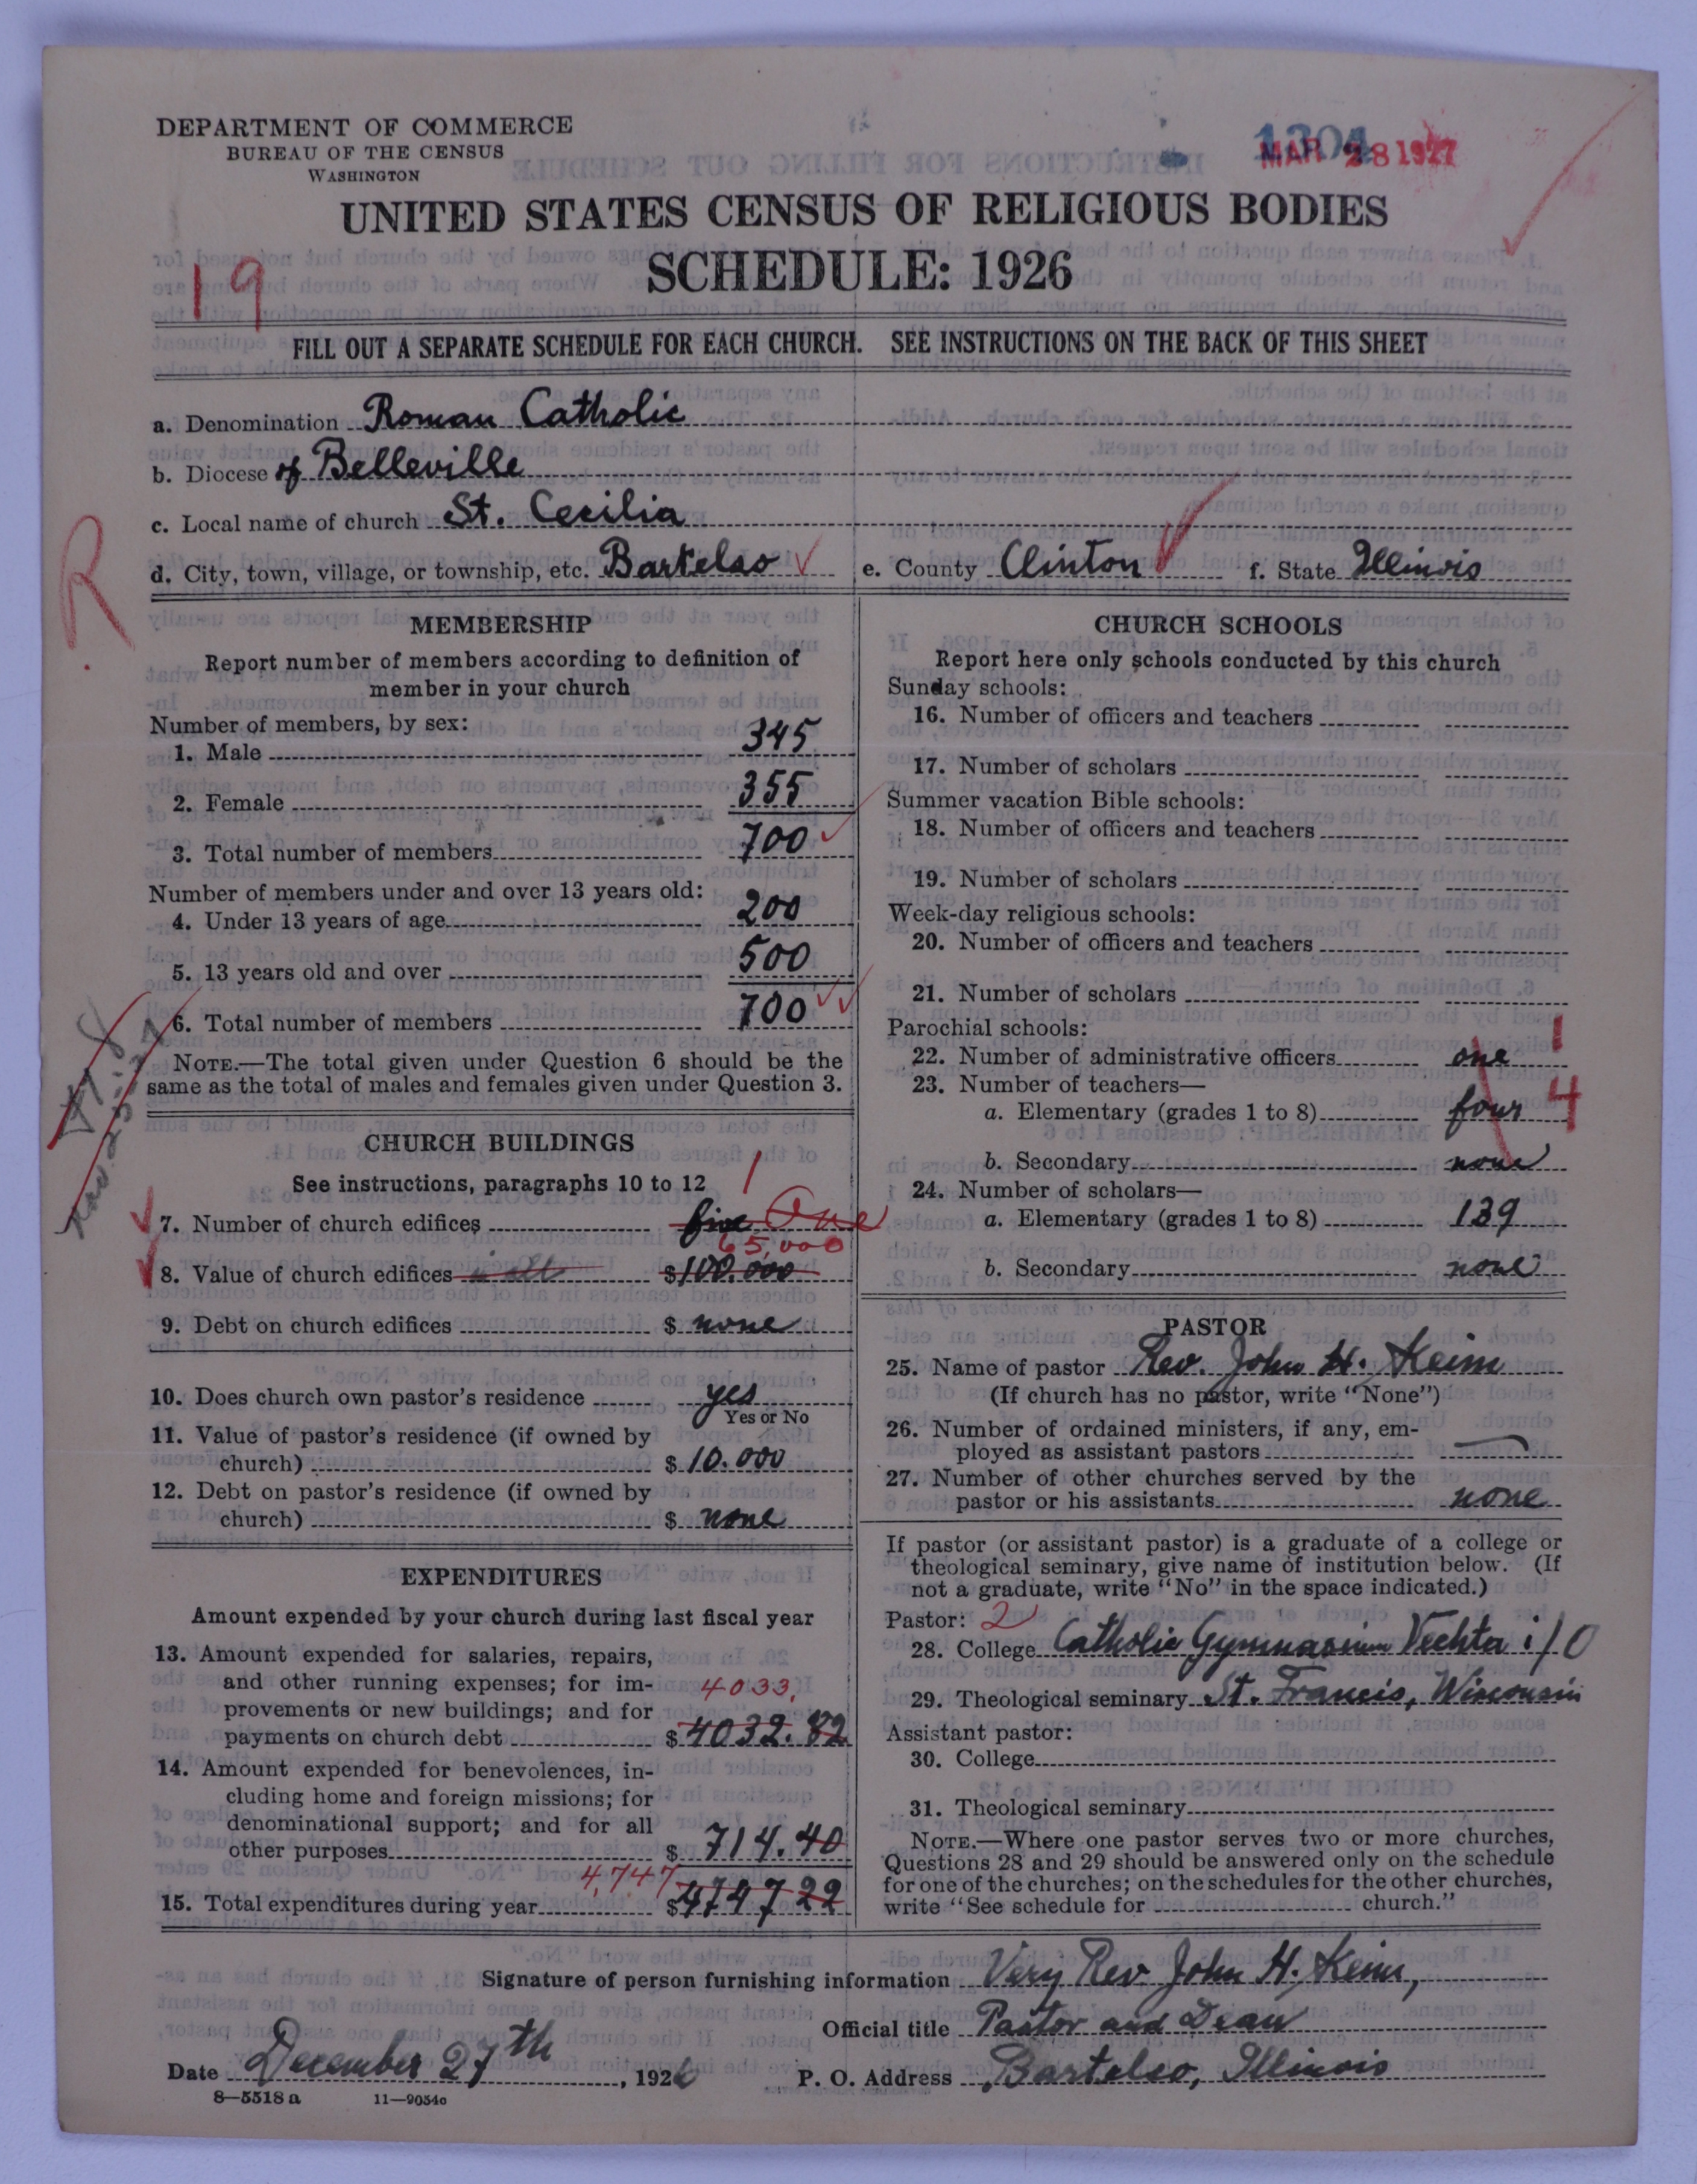 DEPARTMENT OF COMMERCE
BUREAU OF THE CENSUS
WASHINGTON
1304
MAR 28 1927
UNITED STATES CENSUS OF RELIGIOUS BODIES
SCHEDULE: 1926
19
FILL OUT A SEPARATE SCHEDULE FOR EACH CHURCH. SEE INSTRUCTIONS ON THE BACK OF THIS SHEET
a. Denomination Roman Catholic
b. Diocese of Belleville
c. Local name of church St. Cecilia
R
d. City, town, village, or township, etc. Bartelso e. County Clinton f. State Illinois
MEMBERSHIP
Report number of members according to definition of
member in your church
Number of members, by sex:
1. Male 345
2. Female 355
3. Total number of members 700
Number of members under and over 13 years old:
4. Under 13 years of age 200
5. 13 years old and over 500
6. Total number of members 700
NOTE.—The total given under Question 6 should be the
same as the total of males and females given under Question 3.
CHURCH BUILDINGS
See instructions, paragraphs 10 to 12
1
7. Number of church edifices five One
65,000
8. Value of church edifices in all $100.000
9. Debt on church edifices $ none
10. Does church own pastor's residence yes
Yes or No
11. Value of pastor's residence (if owned by
church) $ 10.000
12. Debt on pastor's residence (if owned by
church) $ none
EXPENDITURES
Amount expended by your church during last fiscal year
13. Amount expended for salaries, repairs,
and other running expenses; for im-
4033,
provements or new buildings; and for
payments on church debt $ 4032.82
14. Amount expended for benevolences, in-
cluding home and foreign missions; for
denominational support; and for all
other purposes $ 714.40
4,747
15. Total expenditures during year $4747 22
CHURCH SCHOOLS
Report here only schools conducted by this church
Sunday schools:
16. Number of officers and teachers
17. Number of scholars
Summer vacation Bible schools:
18. Number of officers and teachers
19. Number of scholars
Week-day religious schools:
20. Number of officers and teachers
21. Number of scholars
Parochial schools:
22. Number of administrative officers one 1
23. Number of teachers—
a. Elementary (grades 1 to 8) four 4
b. Secondary none
24. Number of scholars—
a. Elementary (grades 1 to 8) 139
b. Secondary none
PASTOR
25. Name of pastor Rev. John H. Keim
(If church has no pastor, write "None")
26. Number of ordained ministers, if any, em-
ployed as assistant pastors
27. Number of other churches served by the
pastor or his assistants none
If pastor (or assistant pastor) is a graduate of a college or
theological seminary, give name of institution below. (If
not a graduate, write "No" in the space indicated.)
Pastor: 2
28. College Catholic Gymnasium Vechta i/O
29. Theological seminary St. Francis, Wisconsin
Assistant pastor:
30. College
31. Theological seminary
NOTE.—Where one pastor serves two or more churches,
Questions 28 and 29 should be answered only on the schedule
for one of the churches; on the schedules for the other churches,
write "See schedule for church."
Signature of person furnishing information Very Rev John H. Keim,
Official title Pastor and Dean
Date December 27th, 1926 P. O. Address Bartelso, Illinois
8—5518 a 11—9054o